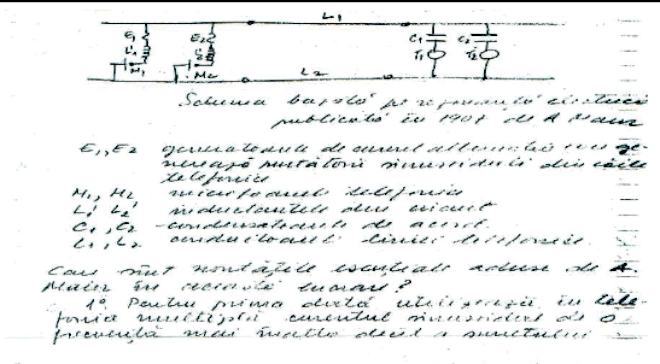 L1
E1 E2 C1 C2
L'1 L'2 T1 T2
M1 M2
L2
Schema bazată pe rezonanță electrică
publicată în 1907 de A Maior
E1, E2 generatoarele de curent alternativ care ge-
nerează purtătorii sinusoidali din căile
telefonice
M1, M2 microfoanele telefonice
L'1 L'2 inductanțele din circuit
C1, C2 condensatoarele de acord.
L1, L2 conductoarele liniei telefonice.
Care sînt noutățile esențiale aduse de A.
Maior în această lucrare?
1º Pentru prima dată utilizează în tele-
fonia multiplă curentul sinusoidal de o
frecvență mai înaltă decît a sunetului